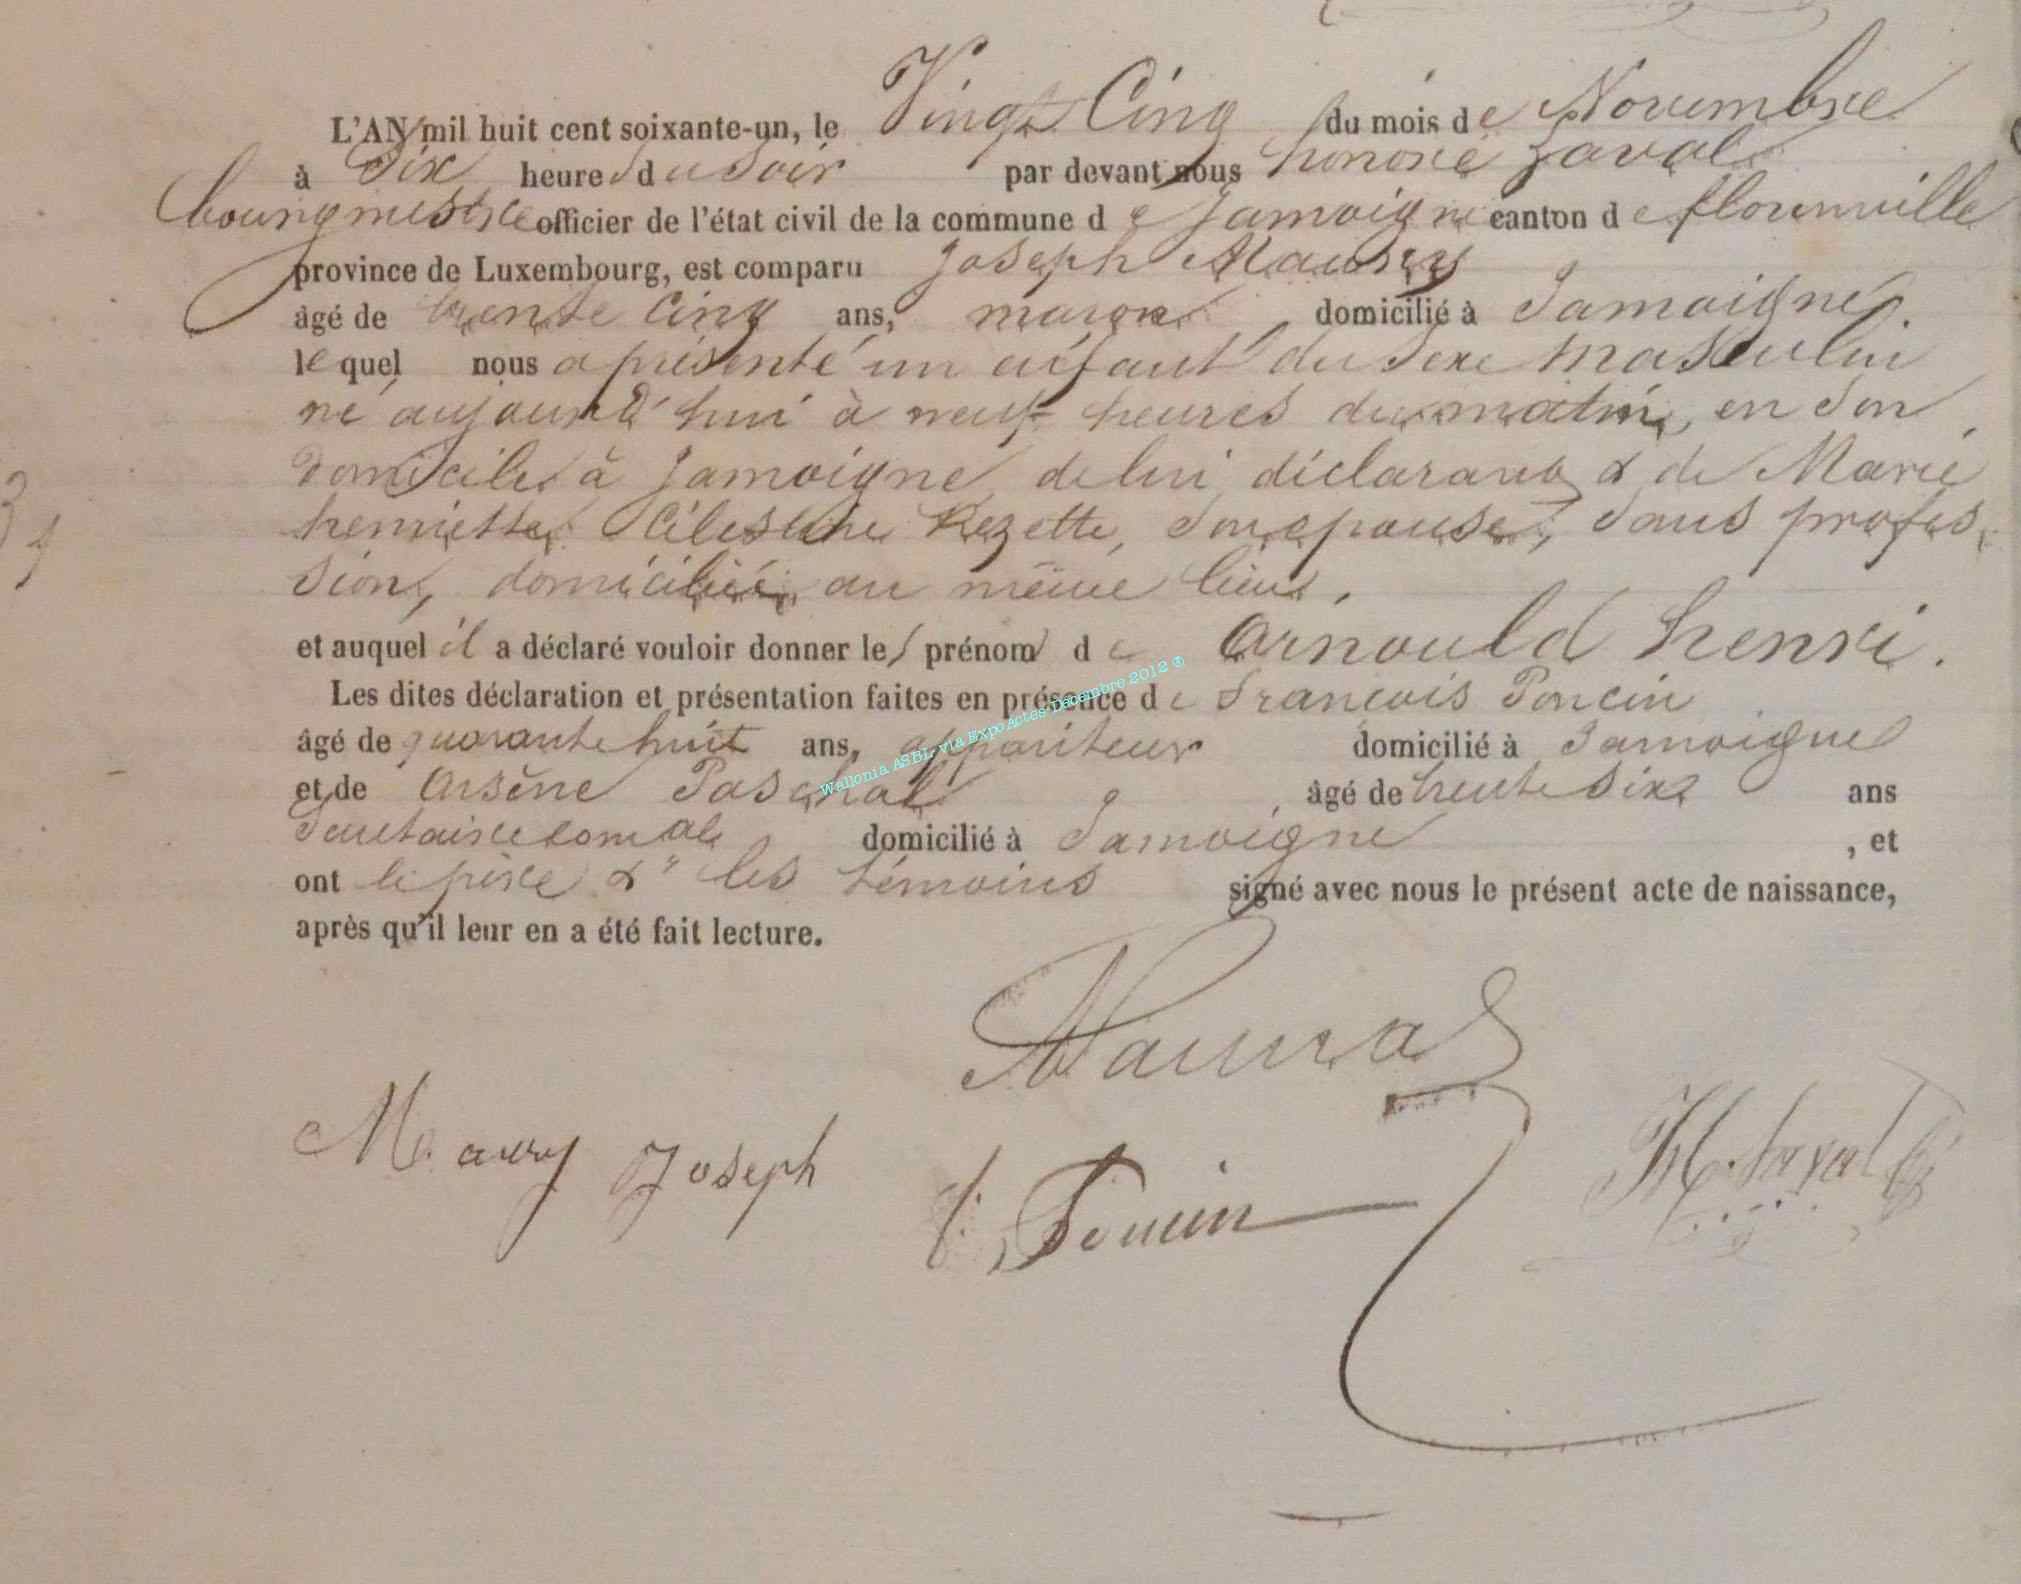 L'AN mil huit cent soixante-un, le Vingt Cinq du mois de Novembre
à Six heures du Soir par devant nous honoré Laval
bourgmestre officier de l'état civil de la commune de Jamoigne canton de florenville
province de Luxembourg, est comparu Joseph Maury
âgé de trente Cinq ans, maçon domicilié à Jamoigne.
lequel nous a présenté un enfant du Sexe masculin
né aujourd'hui à neuf heures du matin, en Son
domicile à Jamoigne de lui déclarant & de Marie
henriette Célestine Rezette, Son épouse, Sans profes
sion, domiciliée au même lieu.
et auquel il a déclaré vouloir donner les prénoms de Arnould henri.
Les dites déclaration et présentation faites en présence de François Poncin
âgé de quarante huit ans, appariteur domicilié à Jamoigne
et de Arsène Paschal, âgé de trente Six ans
Secrétaire comal domicilié à Jamoigne, et
ont le père & les témoins signé avec nous le présent acte de naissance,
après qu'il leur en a été fait lecture.
Wallonia ASBL via ExpoActes Décembre 2012 ®
Maury Joseph
f. Poncin
H. Laval